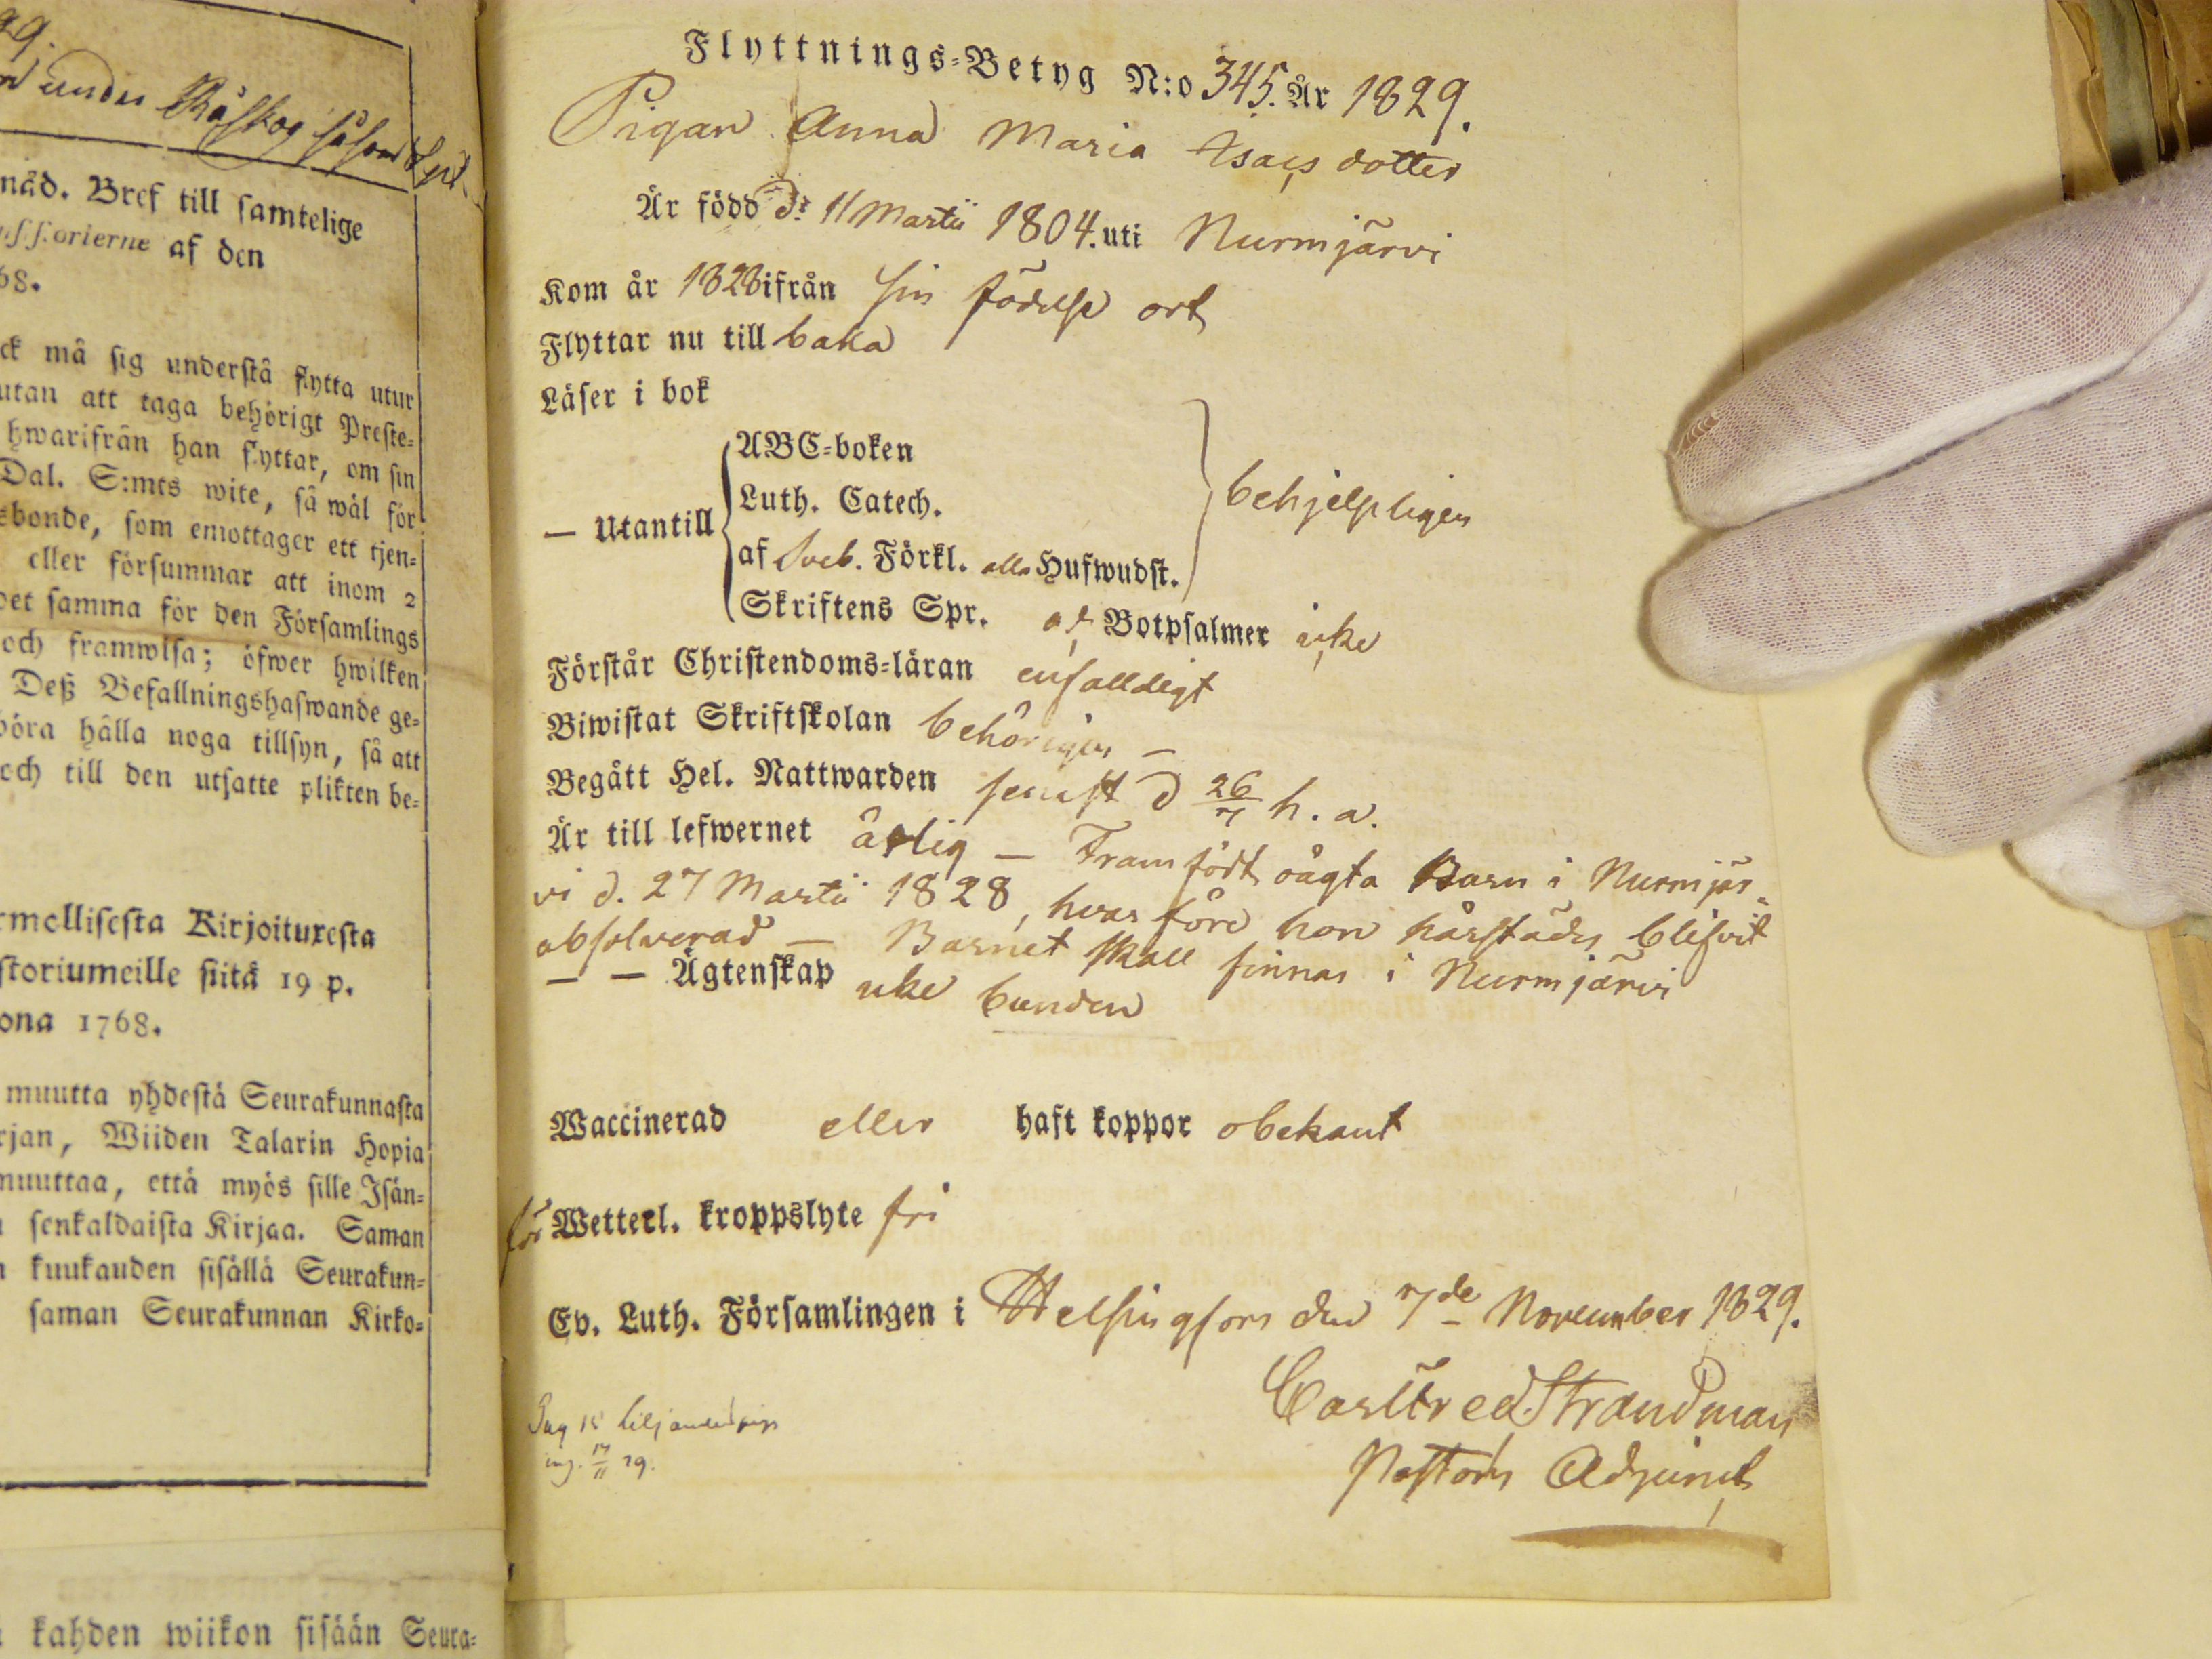 29.
under Råskog såsom
nåd. Bref till samtelige
orierne af den
68.
ck må sig understå flytta utur
utan att taga behörigt Preste-
hwarifrån han flyttar, om sin
Dal. S:mts wite, så wäl för
bonde, som emottager ett tjen-
eller försummar att inom 2
et samma för den Församlings
och framwisa; öfwer hwilken
Deß Befallningshafwande ge-
öra hålla noga tillsyn, så att
och till den utsatte plikten be-
rmellisesta Kirjoituxesta
storiumeille siitä 19 p.
ona 1768.
muutta yhdestä Seurakunnasta
rjan, Wiiden Talarin Hopia
muuttaa, että myös sille Isän-
senkaldaista Kirjaa. Saman
kuukauden sisällä Seurakun-
saman Seurakunnan Kirko-
kahden wiikon sisään Seura-
Flyttnings-Betyg N:o 345. År 1829.
Pigan Anna Maria Isacsdotter
Är född d: 11 Martii 1804. uti Nurmjärvi
Kom år 1828 ifrån sin födelse ort
Flyttar nu till baka
Läser i bok
— Utantill
ABC-boken
Luth. Catech.
af Sveb. Förkl. alla Hufwudst.
behjelpligen
Skriftens Spr. och Botpsalmer icke
Förstår Christendoms-läran enfalldigt
Biwistat Skriftskolan behörigen —
Begått Hel. Nattwarden senast d 26/7 h. a.
Är till lefwernet ärlig — Framfödt oägta Barn i Nurmjär-
vi d. 27 Martii 1828, hvarföre hon härstädes blifvit
absolverad — Barnet skall finnas i Nurmjärvi
— — Ägtenskap icke bunden
Waccinerad eller haft koppor obekant
för Wetterl. kroppslyte fri
Ev. Luth. Församlingen i Helsingfors den 7de November 1829.
Carl Fred. Strandman
Pastors Adjunct
ing. 17/11 29.